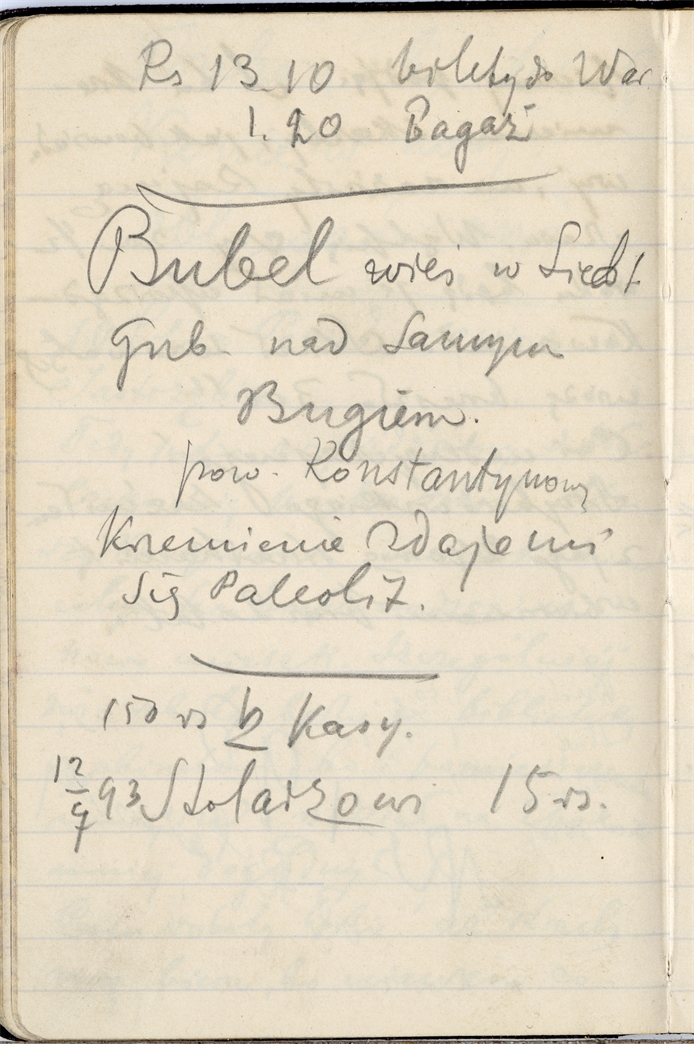 Rs 13.10 bilety do War
1.20 Bagaż
Bubel wieś w Siedl.
Gub. nad samym
Bugiem.
pow. Konstantynow
Krzemienie zdaje mi
się Paleolit.
150 rs b Kasy.
12/9 93 Stolarzowi 15 rs.